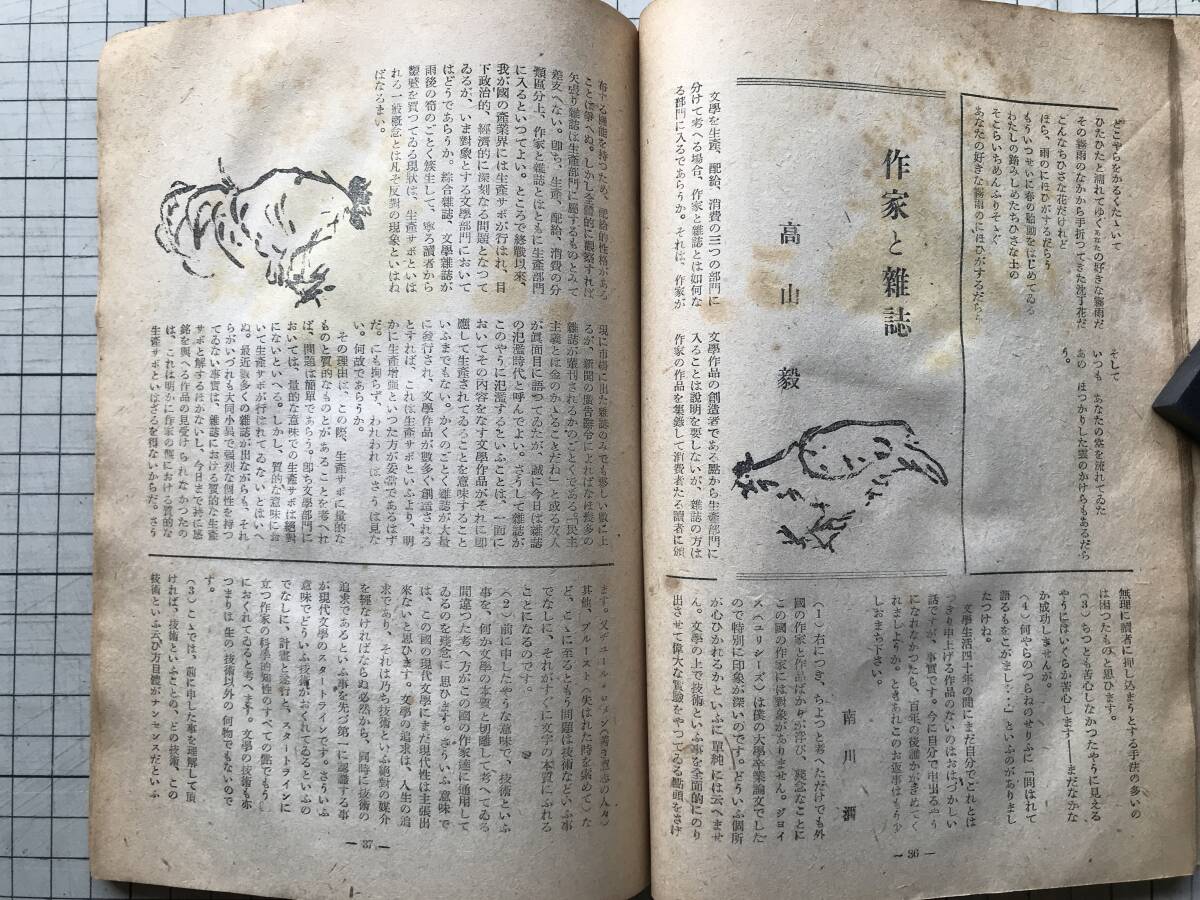 どこやらをかるくたゝいて
ひたひたと濡れてゆくあなたの好きな霧雨だ
その霧雨のなかから手折つてきた沈丁花だ
こんなちひさな花だけれど
ほら、雨のにほひがするだらう
もういつせいに春の胎動をはじめてゐる
わたしの踏みしめたちひさな土の
そこらいちめんふりそゝぐ
あなたの好きな霧雨のにほひがするだらう
そして
いつも あなたの窓を流れてゐた
あの ほつかりした雲のかけらもあるだら
う。
作家と雜誌
高山毅
文學を生產、配給、消費の三つの部門に
分けて考へる場合、作家と雜誌とは如何な
る部門に入るであらうか。それは、作家が
文學作品の創造者である點から生產部門に
入ることは說明を要しないが、雜誌の方は
作家の作品を集錄して消費者たる讀者に頒
無理に讀者に押し込まうとする手法の多いの
は困つたものと思ひます。
(3)ちつとも苦心しなかつたやうに見える
やうにはいくらか苦心します――まだなかな
か成功しませんが。
(4)何やらのつらねのせりふに「問はれて
語るもをこがまし‥‥」といふのがありまし
たつけね。
文學生活四十年の間にまだ自分でこれとは
つきり申上げる作品のないのはおはづかしい
話ですが、事實です。今に自分で申出るやう
になれなかつたら、百年の後誰かがきめてく
れましようか。ときあれこのお返事はもう少
しおまち下さい。
南川潤
(1)右につき、ちよつと考へただけでも外
國の作家と作品ばかりが浮び、殘念なことに
この國の作家には對象がありません。ジヨイ
ス(ユリシーズ)は僕の大學卒業論文でした
ので特別に印象が深いのです。どういふ個所
が心ひかれるかといふに單純には云へませ
ん。文學の上で技術といふ事を全面的にのり
出させて偉大な實驗をやつてゐる點頭をさげ
― 36 ―
布する機能を持つため、配給的性格がある
ことは爭へぬ。しかし全體的に觀察すれば
矢張り雜誌は生產部門に屬するものとみて
差支へない。卽ち、生產、配給、消費の分
類區分上、作家と雜誌とはともに生產部門
に入るといつてよい。ところで終戰以來、
我が國の產業界には生產サボが行はれ、目
下政治的、經濟的に深刻なる問題となつて
ゐるが、いま對象とする文學部門において
はどうであらうか。綜合雜誌、文學雜誌が
雨後の筍のごとく簇生して、寧ろ讀者から
顰蹙を買つてゐる現狀は、生產サボといは
れる一般概念とは凡そ反對の現象といはね
ばなるまい。
現に市場に出た雜誌のみでも夥しい數に上
るが、新聞の廣告辭令によればなほ幾多の
雜誌が發刊されるかのごとくである「民主
主義とは金のかゝることだね」と或る友人
が眞面目に語つてゐたが、誠に今日は雜誌
の氾濫時代と呼んでよい。さうして雜誌が
このやうに氾濫するといふことは、一面に
おいてその內容をなす文學作品がそれに卽
應して生產されてゐることを意味すること
いふまでもない。かくのごとく雜誌が大量
に發行され、文學作品が數多く創造される
とすれば、これは生產サボといふより、明
かに生產增强といつた方が妥當であるはず
だ。にも拘らず、われわれはさうは見た
い。何故であらうか。
その理由は、この際、生產サボに量的な
ものと質的なものとがあることを考へれ
ば、問題は簡單であらう。卽ち文學部門に
おいては、量的な意味での生產サボは絕對
にないといへる。しかし、質的な意味にお
いて生產サボが行はれてゐないとはいへ
ぬ。最近數多くの雜誌が出ながらも、それ
らがいづれも大同小異で强烈な個性を持つ
てゐない事實は、雜誌における質的な生產
サボと解するほかないし、今日まで特に感
銘を與へる作品の見受けられなかつたの
は、これは明かに作家の側における質的な
生產サボといはざるを得ないからだ。さう
ます。又ヂユール・ロマン(善き意志の人々)
其他、プルースト(失はれた時を索めて)な
ど、こゝに至るともう問題は技術などいふ事
でなしに、それがすぐに文學の本質にふれる
ことになるのです。
(2)前に申したやうな意味で、技術といふ
事を、何か文學の本質と切離して考へてゐる
間違つた考へ方がこの國の作家達に通用して
ゐるのを殘念に思ひます。さういふ意味で
は、この國の現代文學にまだ現代性は主張出
來ないと思ひます。文學の追求は、人生の追
求であり、それは乃ち技術といふ絕對の媒介
を經なければならぬ必然から、同時に技術の
追求であるといふ事を先づ第一に認識する事
が現代文學のスタートラインです。さういふ
意味でどういふ技術がおくれてゐるといふの
でなしに、計畫と遂行と、スタートラインに
立つ作家の科學的知性のすべての點でもう
におくれてゐると考へます。文學の技術も亦
つまりは生の技術以外の何物でもないので
す。
(3)こゝでは、前に申した事を理解して頂
ければ、技術といふことの、どの技術、この
技術といふ云ひ方自體がナンセンスだといふ
― 37 ―